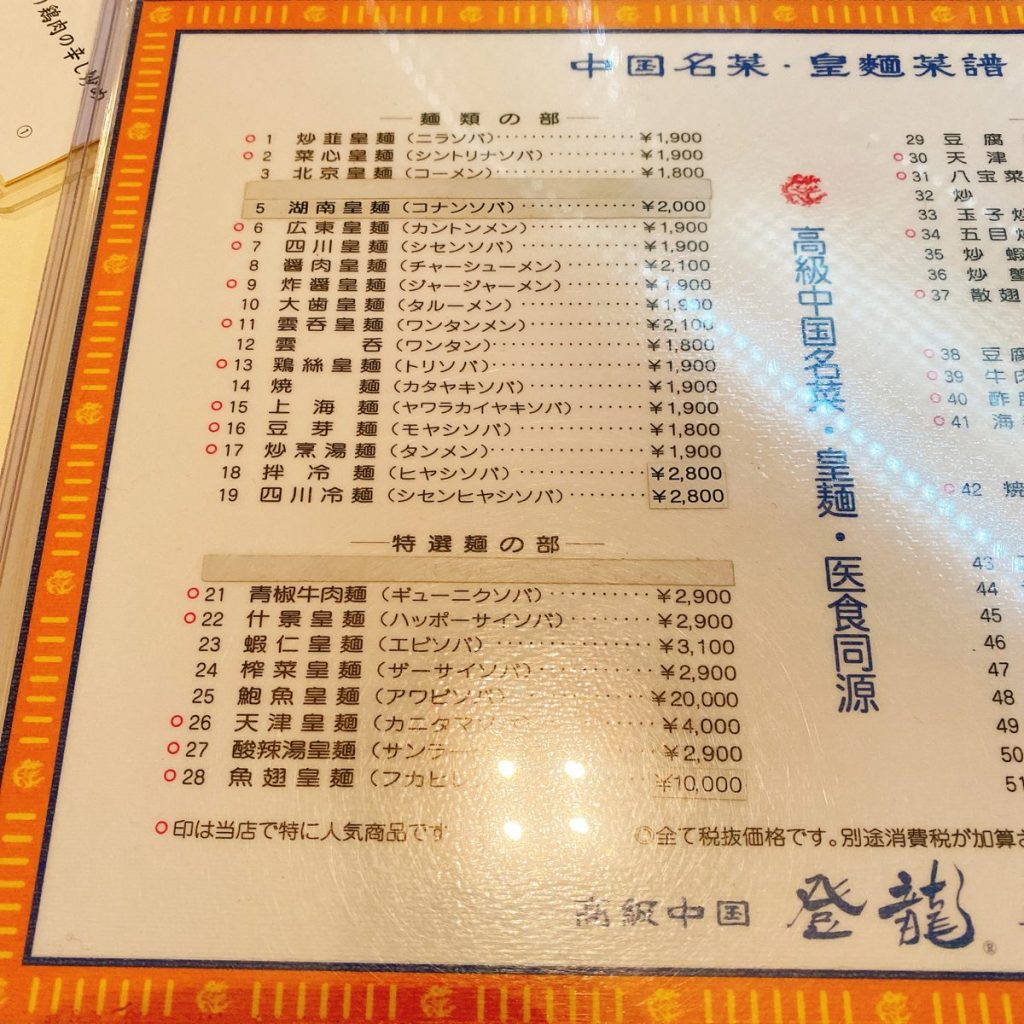 鶏肉の辛し
①
中国名菜・皇麵菜譜
麵類の部
○ 1 炒韮皇麵(ニラソバ)················¥1,900
○ 2 菜心皇麵(シントリナソバ)··········¥1,900
3 北京皇麵(コーメン)················¥1,800
5 湖南皇麵(コナンソバ)··············¥2,000
○ 6 広東皇麵(カントンメン)············¥1,900
○ 7 四川皇麵(シセンソバ)··············¥1,900
8 醤肉皇麵(チャーシューメン)········¥2,100
○ 9 炸醤皇麵(ジャージャーメン)········¥1,900
10 大歯皇麵(タルーメン)··············¥1,900
○ 11 雲呑皇麵(ワンタンメン)············¥2,100
12 雲呑(ワンタン)··················¥1,800
○ 13 鶏絲皇麵(トリソバ)················¥1,900
14 焼麵(カタヤキソバ)··············¥1,900
○ 15 上海麵(ヤワラカイヤキソバ)········¥1,900
○ 16 豆芽麵(モヤシソバ)··············¥1,800
○ 17 炒烹湯麵(タンメン)················¥1,900
18 拌冷麵(ヒヤシソバ)··············¥2,800
19 四川冷麵(シセンヒヤシソバ)········¥2,800
特選麵の部
○ 21 青椒牛肉麵(ギューニクソバ)··········¥2,900
○ 22 什景皇麵(ハッポーサイソバ)········¥2,900
23 蝦仁皇麵(エビソバ)················¥3,100
24 榨菜皇麵(ザーサイソバ)············¥2,900
25 鮑魚皇麵(アワビソバ)··············¥20,000
○ 26 天津皇麵(カニタマソバ)············¥4,000
○ 27 酸辣湯皇麵(サンラー ¥2,900
○ 28 魚翅皇麵(フカヒレ ¥10,000
○印は当店で特に人気商品です
◎全て税抜価格です。別途消費税が加算さ
高級中国名菜・皇麵・医食同源
29 豆腐
○ 30 天津
○ 31 八宝菜
32 炒
33 玉子炒
○ 34 五目炒
35 炒蝦
36 炒蟹
○ 37 散翅
○ 38 豆腐
○ 39 牛肉
○ 40 酢豚
○ 41 海
○ 42 焼
43
44
45
46
47
48
49
50
51
高級中国 登龍 ®